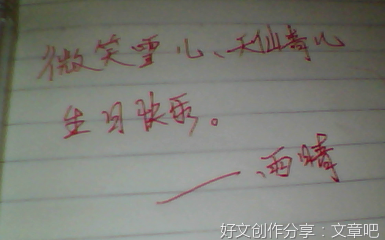 微笑雪儿、天仙奇儿
生日快乐。
——雨晴
好文创作分享：文章吧